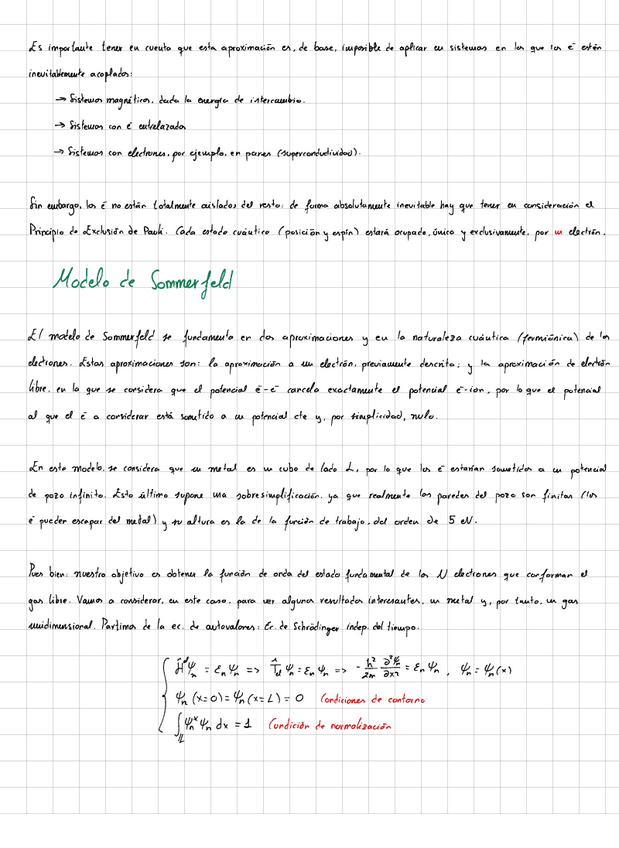 Es importante tener en cuenta que esta aproximación es, de base, imposible de aplicar en sistemas en los que los e⁻ estén
inevitablemente acoplados:
→ Sistemas magnéticos, dada la energía de intercambio.
→ Sistemas con e⁻ entrelazados
→ Sistemas con electrones, por ejemplo, en pares (superconductividad).
Sin embargo, los e⁻ no están totalmente aislados del resto: de forma absolutamente inevitable hay que tener en consideración el
Principio de Exclusión de Pauli. Cada estado cuántico (posición y espín) estará ocupado, única y exclusivamente, por un electrón.
Modelo de Sommerfeld
El modelo de Sommerfeld se fundamenta en dos aproximaciones y en la naturaleza cuántica (fermiónica) de los
electrones. Estas aproximaciones son: la aproximación a un electrón, previamente descrita; y la aproximación de electrón
libre, en la que se considera que el potencial e⁻-e⁻ cancela exactamente el potencial e⁻-ion, por lo que el potencial
al que el e⁻ a considerar está sometido a un potencial cte y, por simplicidad, nulo.
En este modelo, se considera que un metal es un cubo de lado L, por lo que los e⁻ estarían sometidos a un potencial
de pozo infinito. Esto último supone una sobresimplificación, ya que realmente las paredes del pozo son finitas (los
e⁻ pueden escapar del metal) y su altura es la de la función de trabajo, del orden de 5 eV.
Pues bien: nuestro objetivo es obtener la función de onda del estado fundamental de los N electrones que conforman el
gas libre. Vamos a considerar, en este caso, para ver algunos resultados interesantes, un metal y, por tanto, un gas
unidimensional. Partimos de la ec. de autovalores: Ec. de Schrödinger indep. del tiempo.
Ĥψₙ = εₙψₙ => T̂ₑₗψₙ = εₙψₙ => -ħ²/2m ∂²ψₙ/∂x² = εₙψₙ, ψₙ = ψₙ(x)
ψₙ(x=0) = ψₙ(x=L) = 0 Condiciones de contorno
∫_L ψₙ*ψₙ dx = 1 Condición de normalización